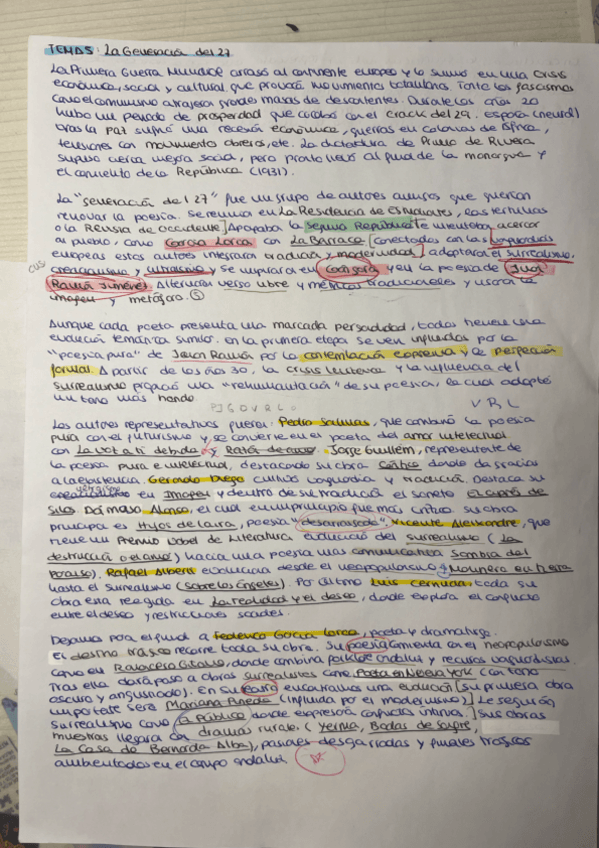 TEMA 5: La Generación del 27
La Primera Guerra Mundial arrasó al continente europeo y lo sumió en una crisis
económica, social y cultural que provocó movimientos totalitarios. Tanto los fascismos
como el comunismo atrajeron grandes masas de descontentos. Durante los años 20
hubo un periodo de prosperidad que acabó con el crack del 29. España (neutral)
tras la paz sufrió una recesión económica, guerras en colonias de África,
tensiones con movimiento obrero, etc. La dictadura de Primo de Rivera
supuso cierta mejora social, pero pronto llevó al final de la monarquía y
el comienzo de la República (1931).
La "generación del 27" fue un grupo de autores amigos que querían
renovar la poesía. Se reunían en La Residencia de Estudiantes, las tertulias
o la Revista de Occidente] Apoyaban la Segunda República e intentaban acercar
al pueblo, como García Lorca con La Barraca [conectados con las vanguardias
europeas estos autores integraron tradición y modernidad] adoptaron el surrealismo,
creacionismo y ultraísmo y se inspiraron en Góngora y en la poesía de Juan
Ramón Jiménez. Alternaron verso libre y métricas tradicionales y usaron la
imagen y metáfora.
Aunque cada poeta presenta una marcada personalidad, todos tienen una
evolución temática similar. En la primera etapa se ven influidos por la
"poesía pura" de Juan Ramón por la contemplación expresiva y la perfección
formal. A partir de los años 30, la crisis y la influencia del
surrealismo propició una "rehumanización" de su poesía, la cual adoptó
un tono más hondo.
P J G D V R L O
V R L
Los autores representativos fueron: Pedro Salinas, que combinó la poesía
pura con el futurismo y se convierte en el poeta del amor intelectual
con La voz a ti debida y Razón de amor. Jorge Guillén, representante de
la poesía pura e intelectual, destacando su obra Cántico donde da gracias
a la existencia. Gerardo Diego cultivó vanguardia y tradición. Destaca su
creacionismo en Imagen y dentro de su tradición el soneto El ciprés de
Silos. Dámaso Alonso, el cual en un principio fue más crítico. Su obra
principal es Hijos de la ira, poesía "desarraigada". Vicente Aleixandre, que
tiene un Premio Nobel de Literatura evolucionó del surrealismo (La
destrucción o el amor) hacia una poesía más comunicativa Sombra del
paraíso). Rafael Alberti evoluciona desde el neopopularismo Marinero en tierra
hasta el surrealismo (Sobre los ángeles). Por último Luis Cernuda, toda su
obra está recogida en La realidad y el deseo, donde explora el conflicto
entre el deseo y restricciones sociales.
Dejamos para el final a Federico García Lorca, poeta y dramaturgo.
El destino trágico recorre toda su obra. Su poesía comienza con el neopopularismo
como en Romancero Gitano, donde combina folklore andaluz y recursos vanguardistas.
Tras ella dará paso a obras surrealistas como Poeta en Nueva York (con tono
oscuro y angustiado). En su teatro encontramos una evolución [su primera obra
importante será Mariana Pineda (influida por el modernismo)] Le seguirán
surrealismo como El Público donde expresará conflictos internos.] sus obras
muestras llegarán con dramas rurales (Yerma, Bodas de Sangre,
La Casa de Bernarda Alba), pasiones desgarradas y finales trágicos
ambientados en el campo andaluz.